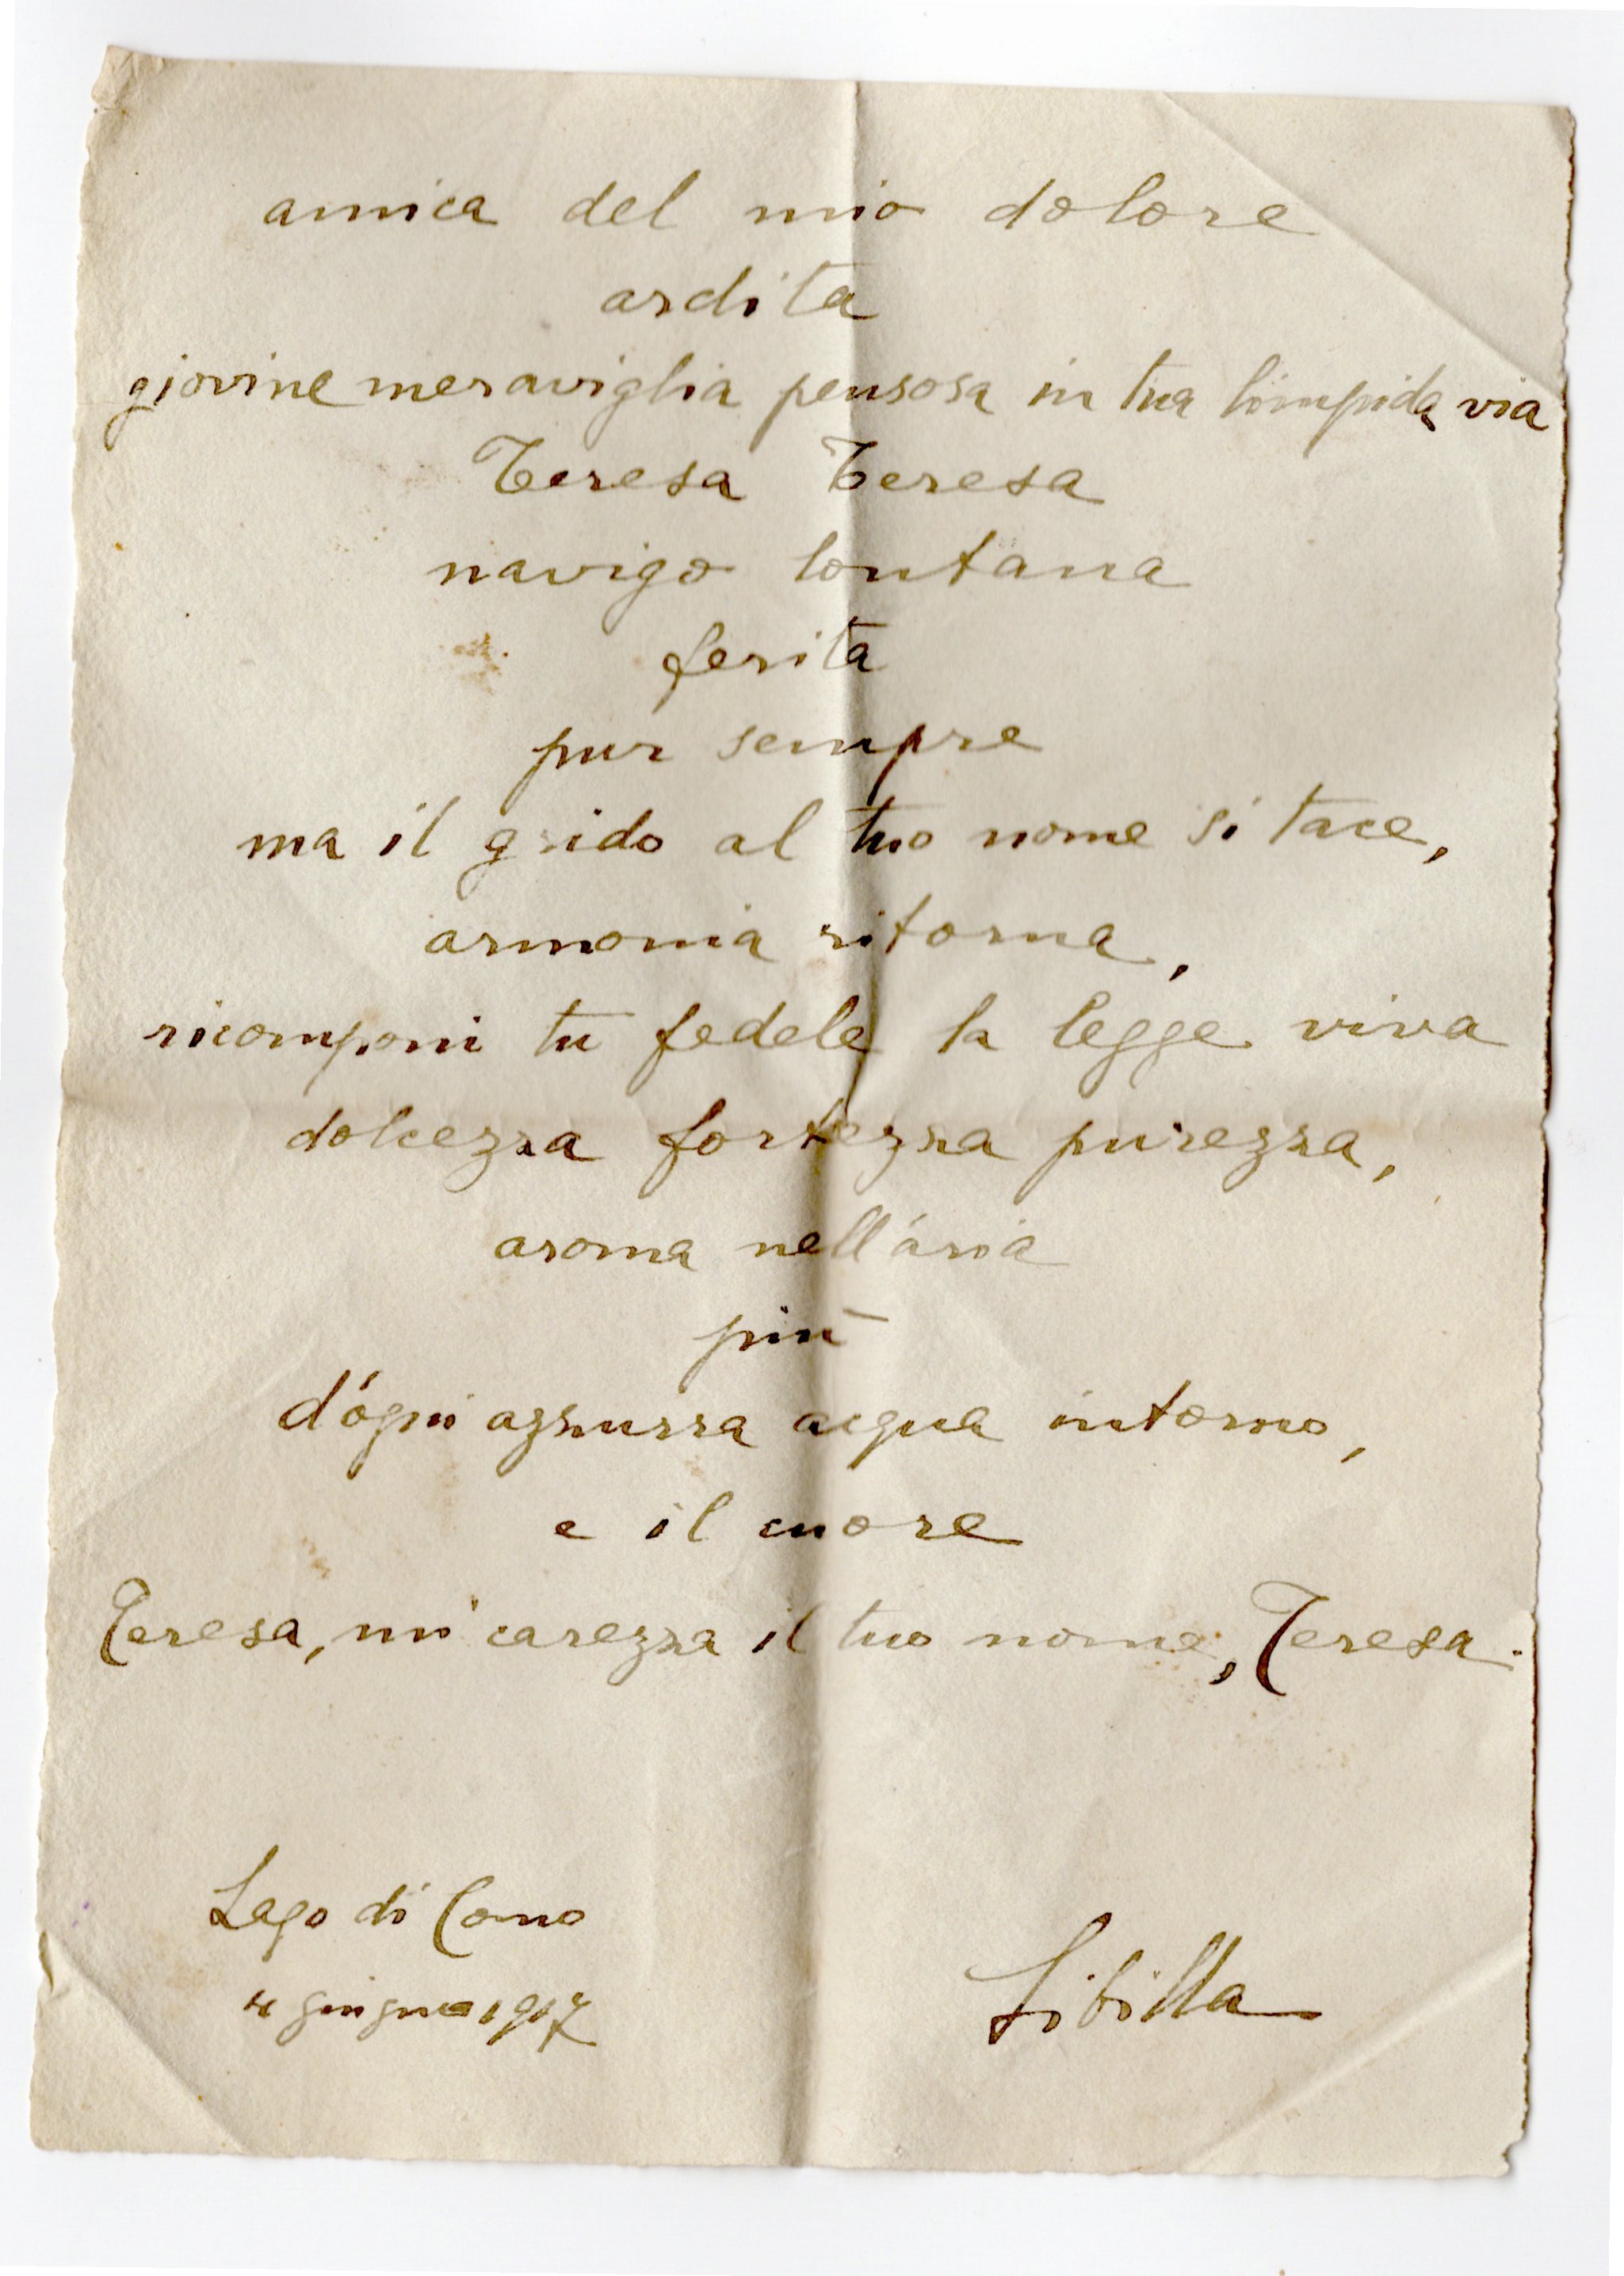 amica del mio dolore
ardita
giovine meraviglia pensosa in tua limpida via
Teresa Teresa
navigo lontana
ferita
pur sempre
ma il grido al tuo nome si tace,
armonia ritorna,
ricomponi tu fedele la legge viva
dolcezza fortezza purezza,
aroma nell'aria
più
d'ogni azzurra acqua intorno,
e il cuore
Teresa, mi carezza il tuo nome, Teresa.
Lago di Como
4 giugno 1917
Sibilla